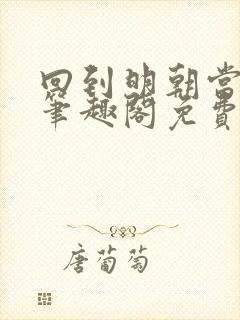 回到明朝当
笔趣阁免费
唐葡萄